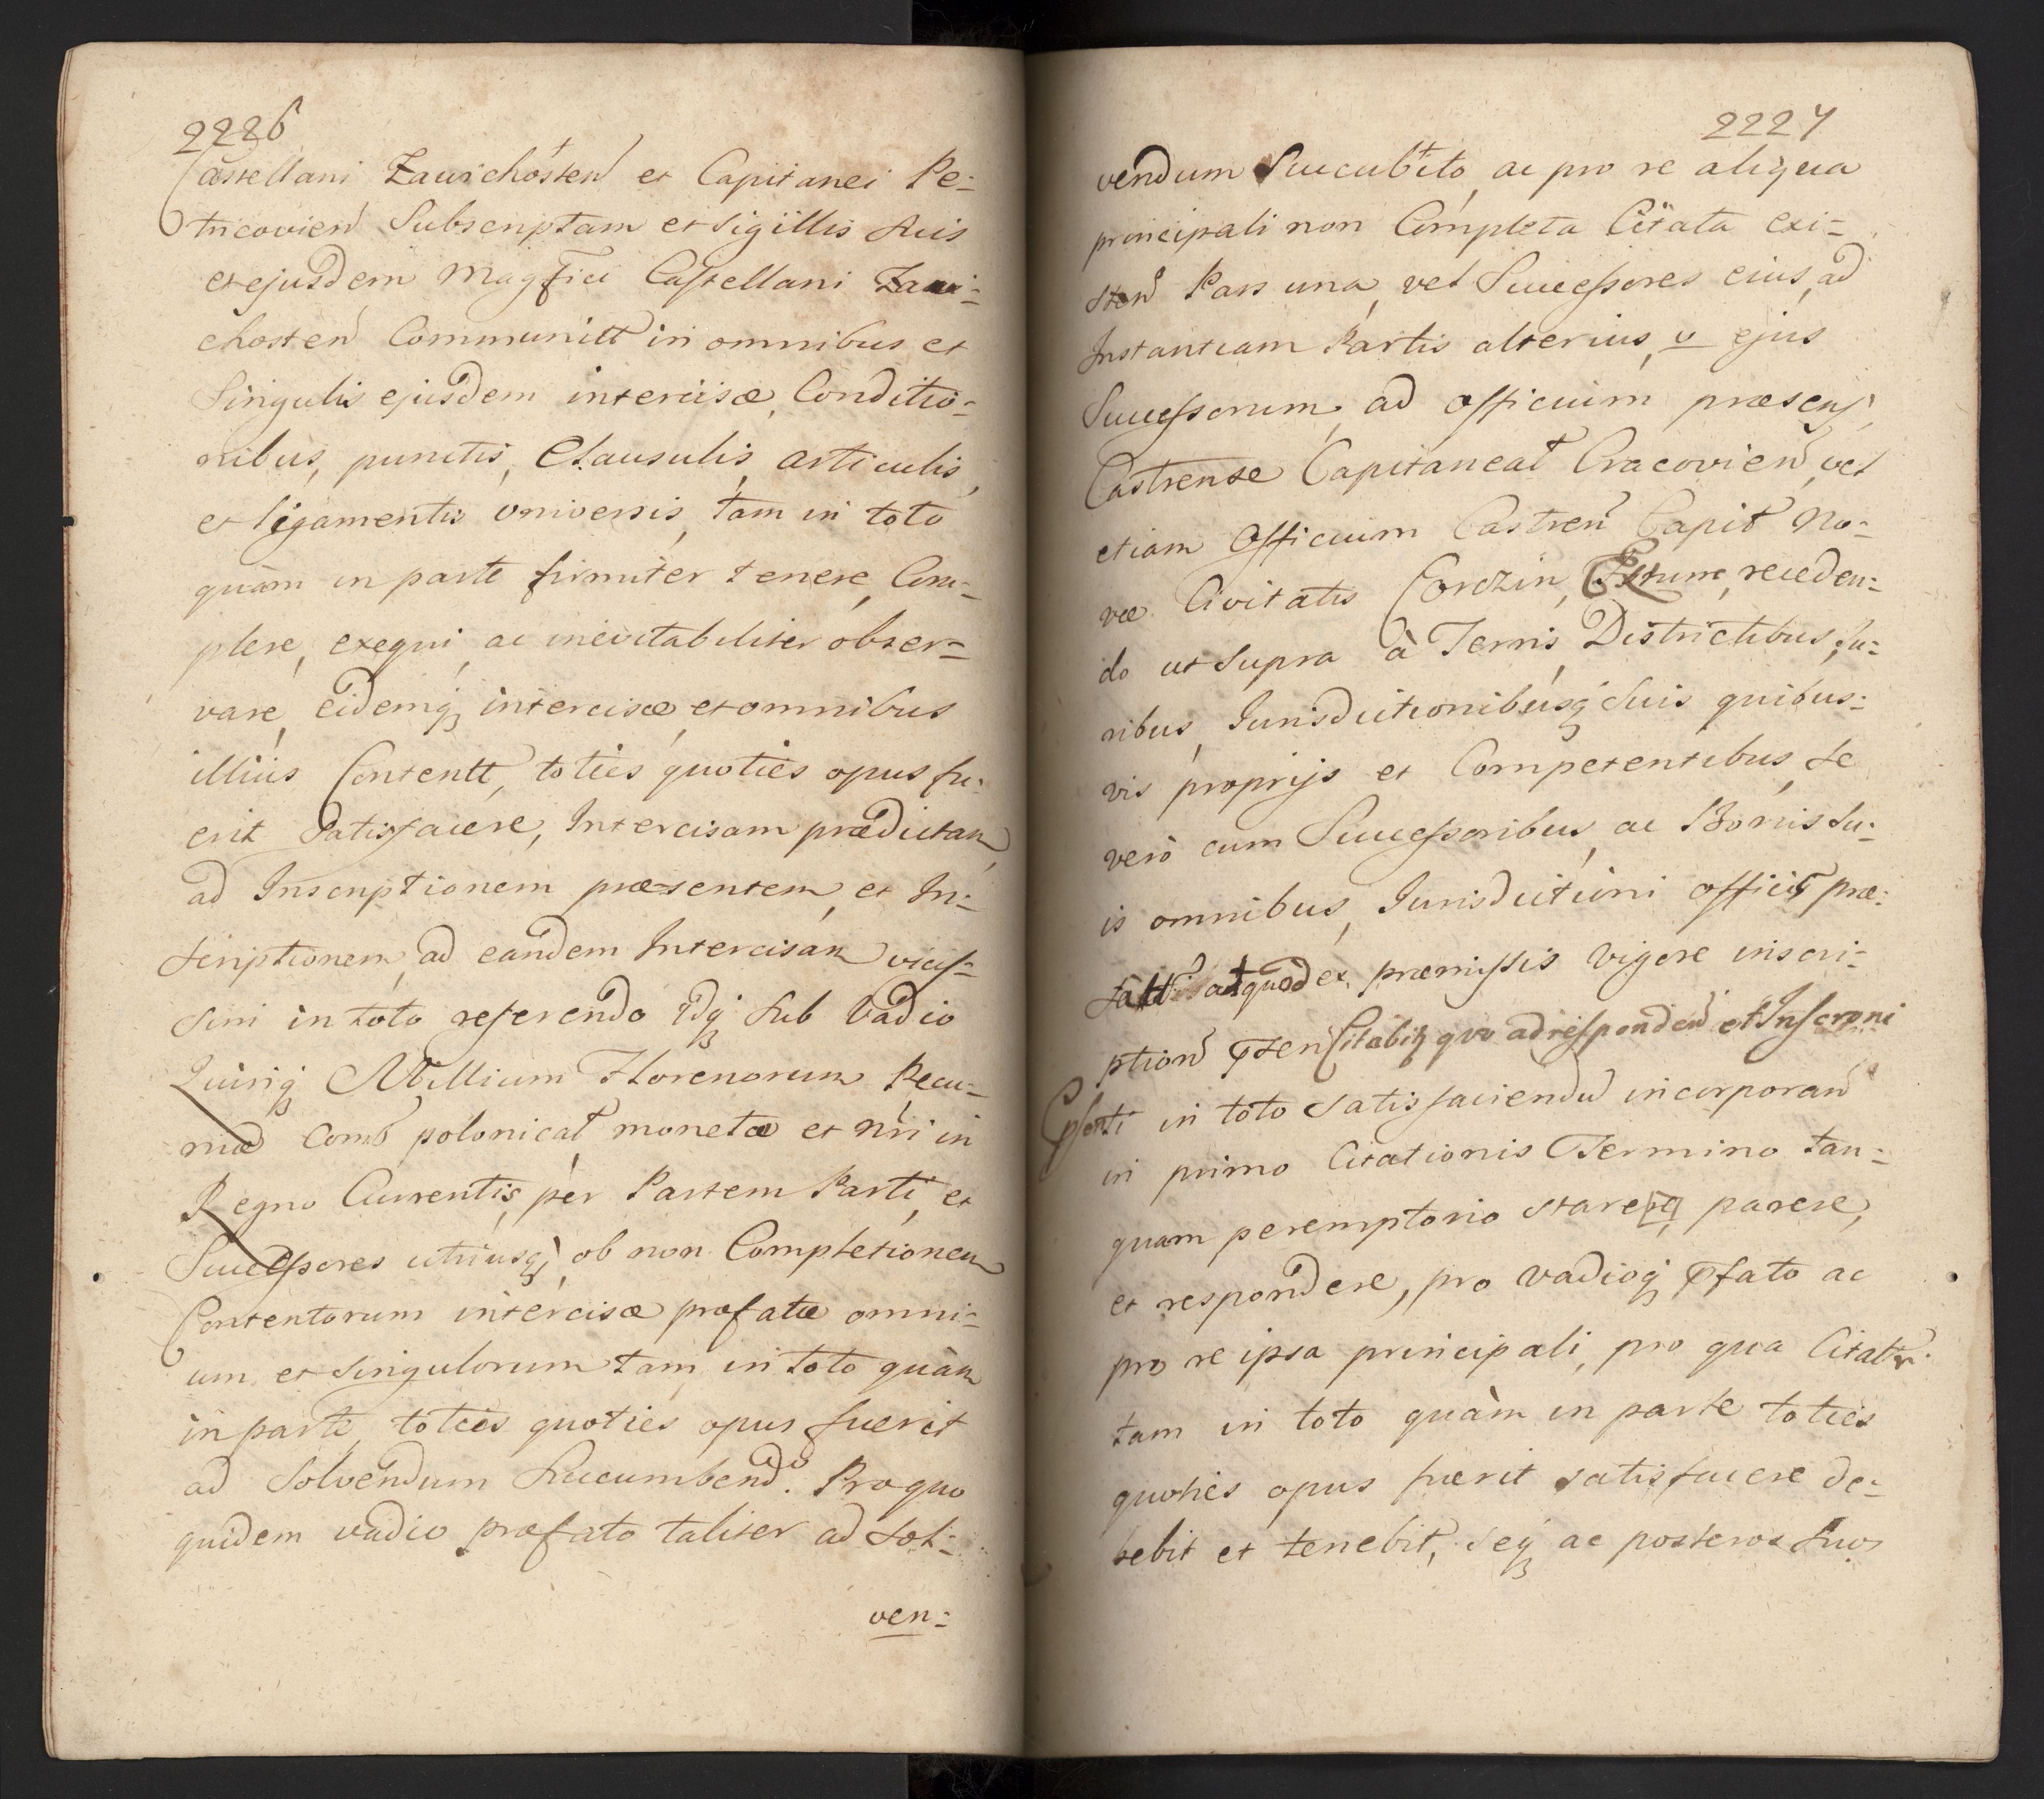 2226
Castellani Zawichosten et Capitanei Pe-
tricovien Subscriptam et Sigillis Suis
et ejusdem Magfici Castellani Zawi-
chosten Communitt in omnibus et
Singulis ejusdem intercisæ, Conditio-
nibus, punctis, Clausulis, articulis,
et ligamentis universis, tam in toto
quàm in parte firmiter tenere, Com-
plere, exequi, ac inevitabiliter obser-
vare, eidemq intercisæ, et omnibus
illius Contentt, toties quoties opus fu-
erit Satisfacere, Intercisam prædictam
ad Inscriptionem præsentem, et In-
scriptionem, ad eandem Intercisam vicis-
sim in toto referendo idq Sub Vadio
Quinq Millium Florenorum Pecu-
niæ Comb polonical monetæ et nri in
Regno Currentis, pér Partem Parti, et
Successores utriusq, ob non Completionem
Contentorum intercisæ præfatæ omni-
um et Singulorum tam in toto quàm
in parte, toties quoties opus fuerit
ad Solvendum Succumbend. Pro quo
quidem vadio præfato taliter ad Sol-
ven-
2227
vendum Succubito, ac pro re aliqua
principali non Completa Citata exi-
sten Pars una, vel Successores eius, ad
Instantiam Partis alterius, v ejus
Successorum, ad officium præsens,
Castrense Capitaneal Cracovien, vel
etiam Officium Castren Capit No-
væ Civitatis Corczin, receden-
do ut Supra à Terris, Districtibus, Ju-
ribus, Jurisdictionibusq Suis quibus-
vis proprijs et Competentibus, Se
verò cum Successoribus, ac Bonis Su-
is omnibus, Jurisdictioni officij præ-
quod ex præmissis vigore inscri-
ption Citabit quo ad responden et Inscrpni
pfenti in toto Satisfaciendu incorporan
in primo Citationis Termino tan-
quam peremptorio Stare parere,
et respondere, pro vadioq pfato ac
pro re ipsa principali, pro qua Citatr
tam in toto quàm in parte toties
quoties opus fuerit satisfacere de-
bebit et tenebit, Seq ac posteros Suos